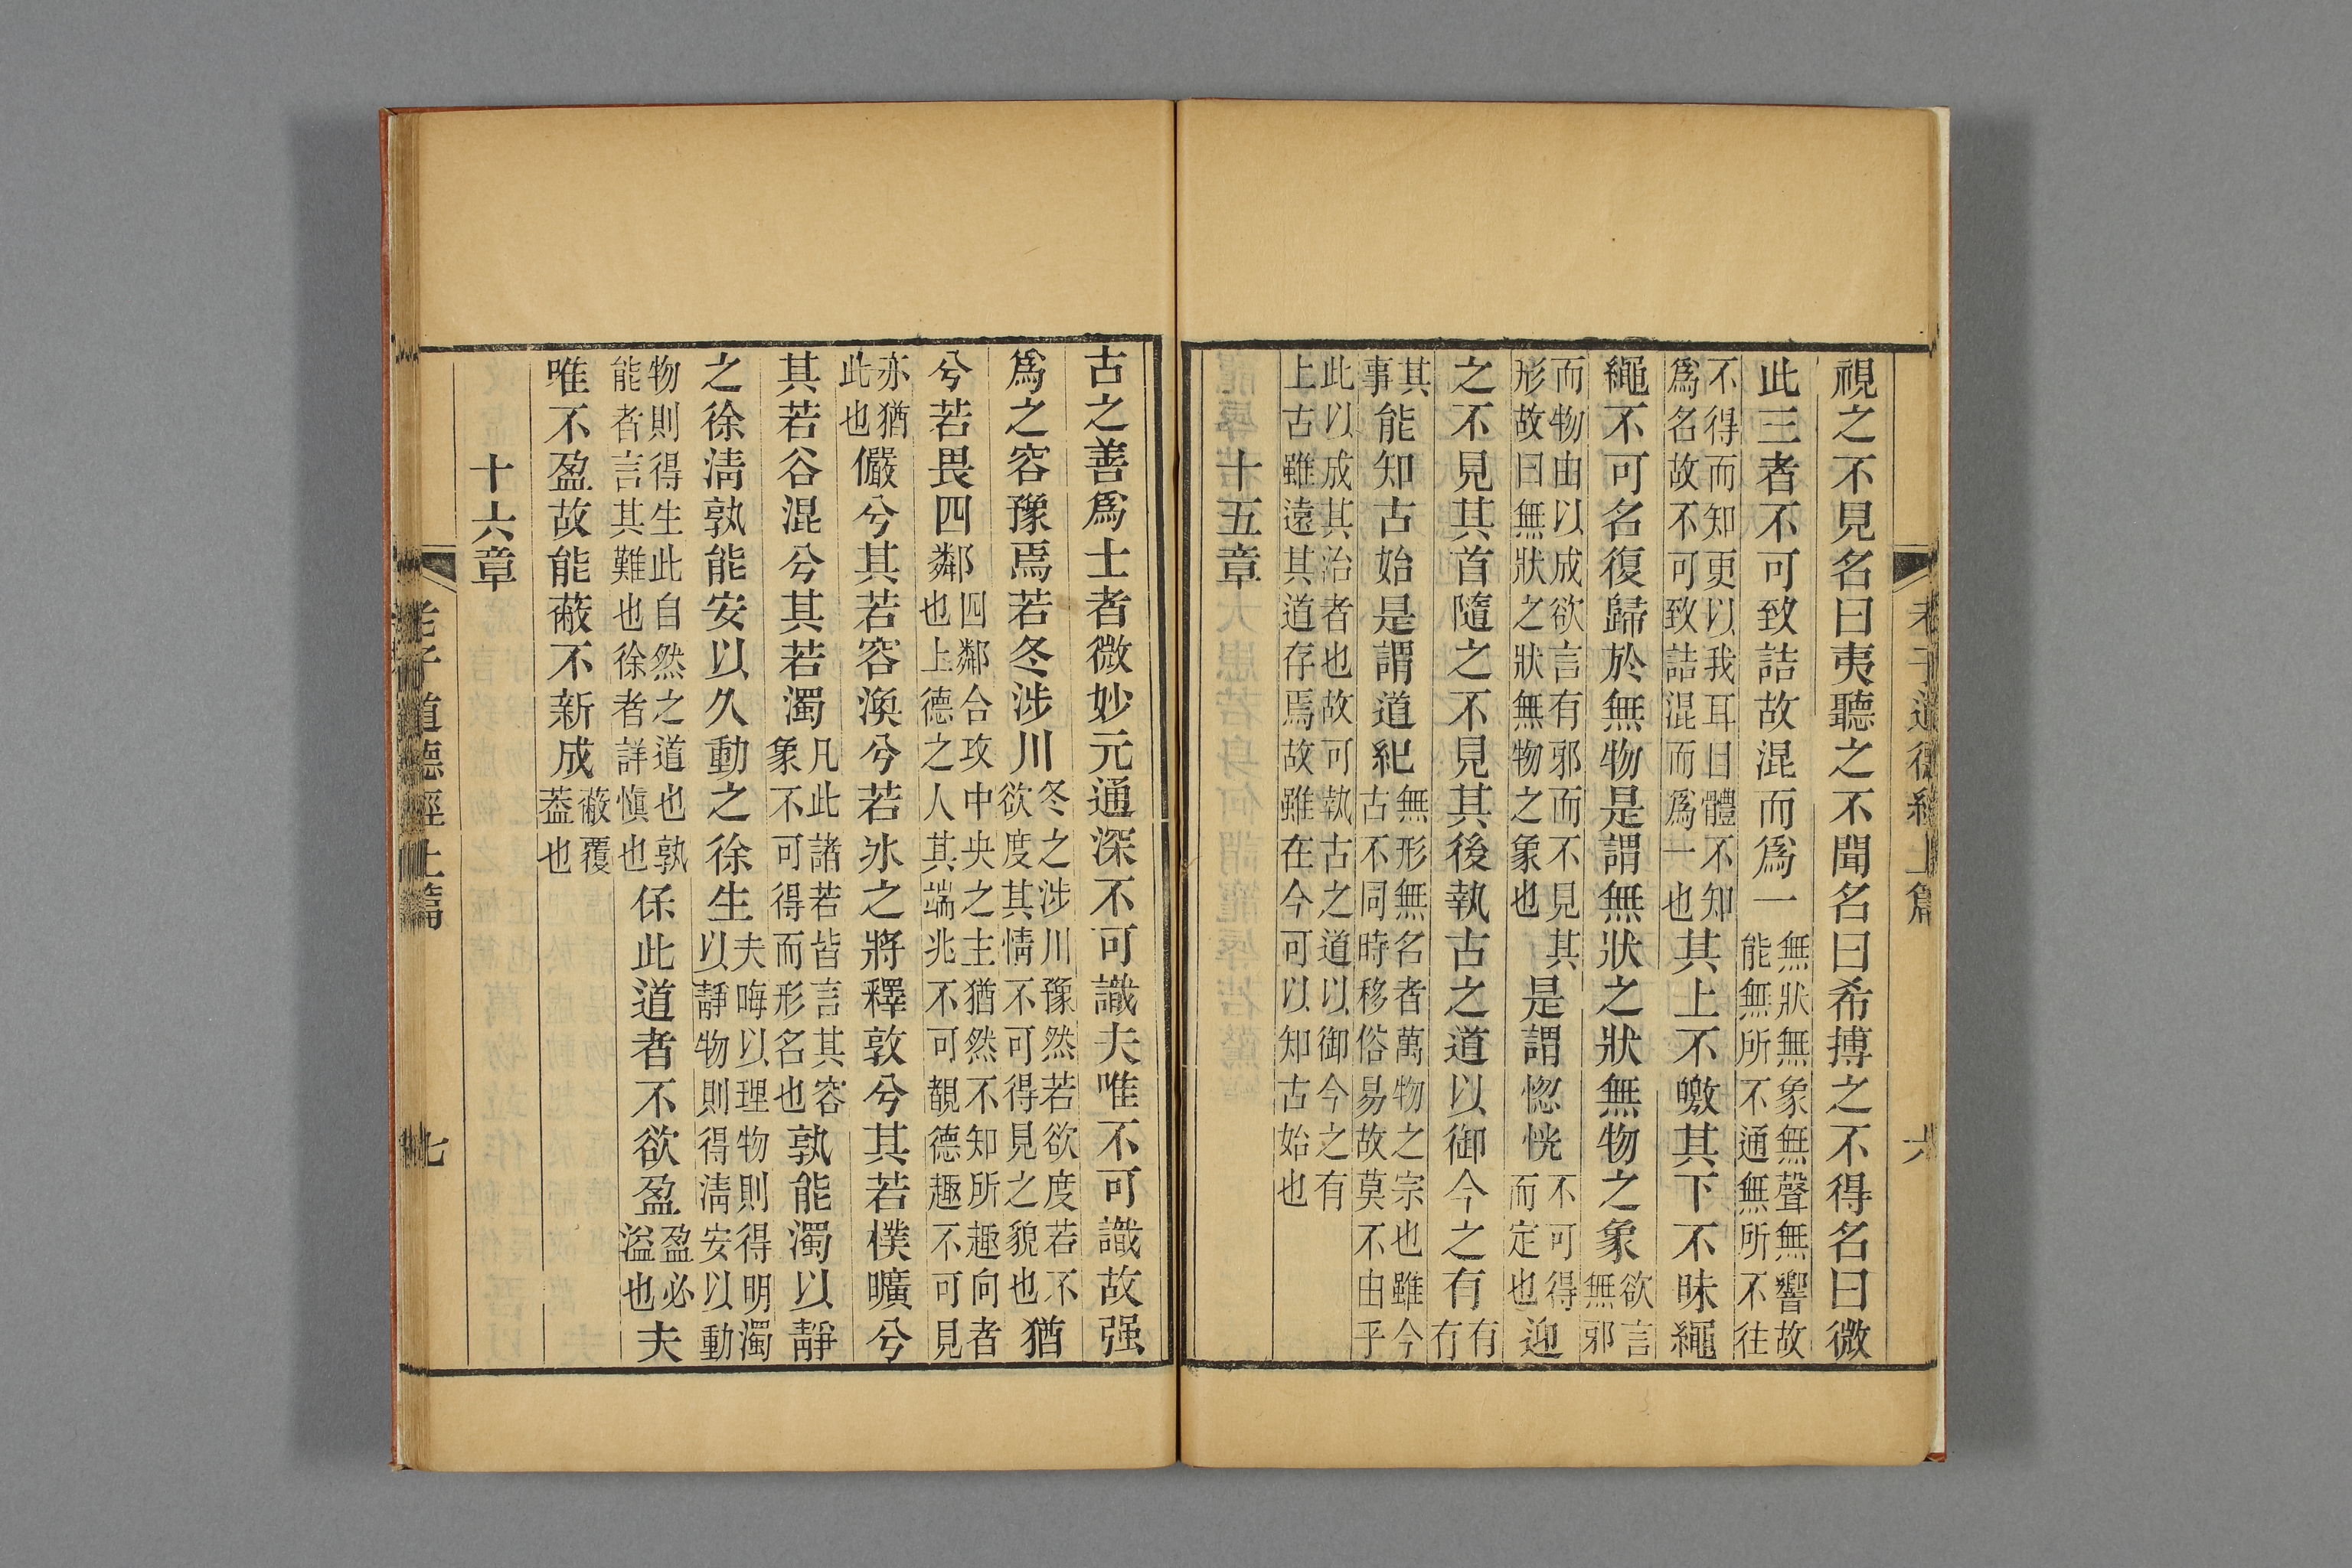 視之不見名曰夷聽之不聞名曰希搏之不得名曰微
此三者不可致詰故混而爲一無狀無象無聲無響故能無所不通無所不往
不得而知更以我耳目體不知爲名故不可致詰混而爲一也其上不皦其下不昧繩
繩不可名復歸於無物是謂無狀之狀無物之象欲言無邪
而物由以成欲言有邪而不見其形故曰無狀之狀無物之象也是謂惚恍不可得而定也迎
之不見其首隨之不見其後執古之道以御今之有有有
其事能知古始是謂道紀無形無名者萬物之宗也雖今古不同時移俗易故莫不由乎
此以成其治者也故可執古之道以御今之有上古雖遠其道存焉故雖在今可以知古始也
十五章
老子道德經上篇
六
古之善爲士者微妙元通深不可識夫唯不可識故强
爲之容豫焉若冬涉川冬之涉川豫然若欲度若不欲度其情不可得見之貌也猶
兮若畏四鄰四鄰合攻中央之主猶然不知所趣向者也上德之人其端兆不可覩德趣不可見
亦猶此也儼兮其若容渙兮若冰之將釋敦兮其若樸曠兮
其若谷混兮其若濁凡此諸若皆言其容象不可得而形名也孰能濁以靜
之徐淸孰能安以久動之徐生夫晦以理物則得明濁以靜物則得淸安以動
物則得生此自然之道也孰能者言其難也徐者詳愼也保此道者不欲盈盈必溢也夫
唯不盈故能蔽不新成蔽覆葢也
十六章
老子道德經上篇
七